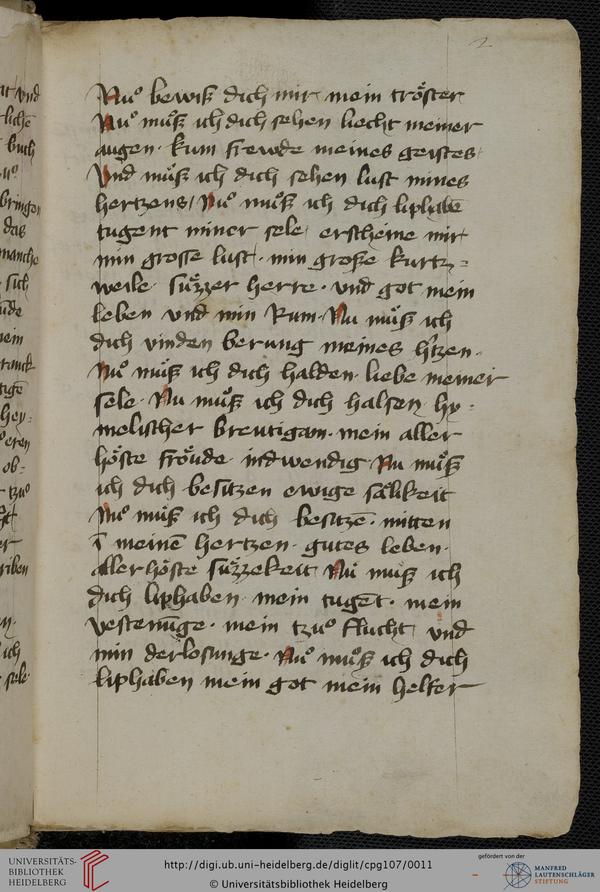 2
Nuͦ bewiß dich mir mein troͤster
Nuͦ muͤß ich dich sehen liecht meiner
augen · kum frewde meines geistes
Vnd muͤß ich dich sehen lust mines
hertzens / Nuͦ muͦß ich dich liphabē
tugent miner sele / erscheine mir
min grosse lust · min große kurtz=
weile · suͤzzer herre · vnd got mein
leben vnd min Rum · Nu muͤß ich
dich vinden berung meines h'tzen ·
Nuͦ muͤß ich dich halden · liebe meiner
sele · Nu muͦß ich dich halsen hy=
melischer Breutigam · mein aller
hoͤste froͤude · indwendig Nu muͤß
ich dich besitzen ewige saͤlikeit
Nuͦ muͤß ich dich besitzē · mitten
ī meinē hertzen · gutes leben ·
allerhoͤste suͤzzekeit Nuͤ muͤß ich
dich liphaben · mein tugēt · mein
vestenūge · mein tzuͦ flucht / vnd
min derlosunge · Nuͦ muͦß ich dich
liphaben mein got mein helfer
UNIVERSITÄTS-
BIBLIOTHEK
HEIDELBERG
http://digi.ub.uni-heidelberg.de/diglit/cpg107/0011
© Universitätsbibliothek Heidelberg
gefördert von der
MANFRED
LAUTENSCHLÄGER
STIFTUNG